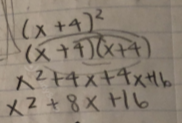 (x+4)²
(x+4)(x+4)
x²+4x+4x+16
x²+8x+16